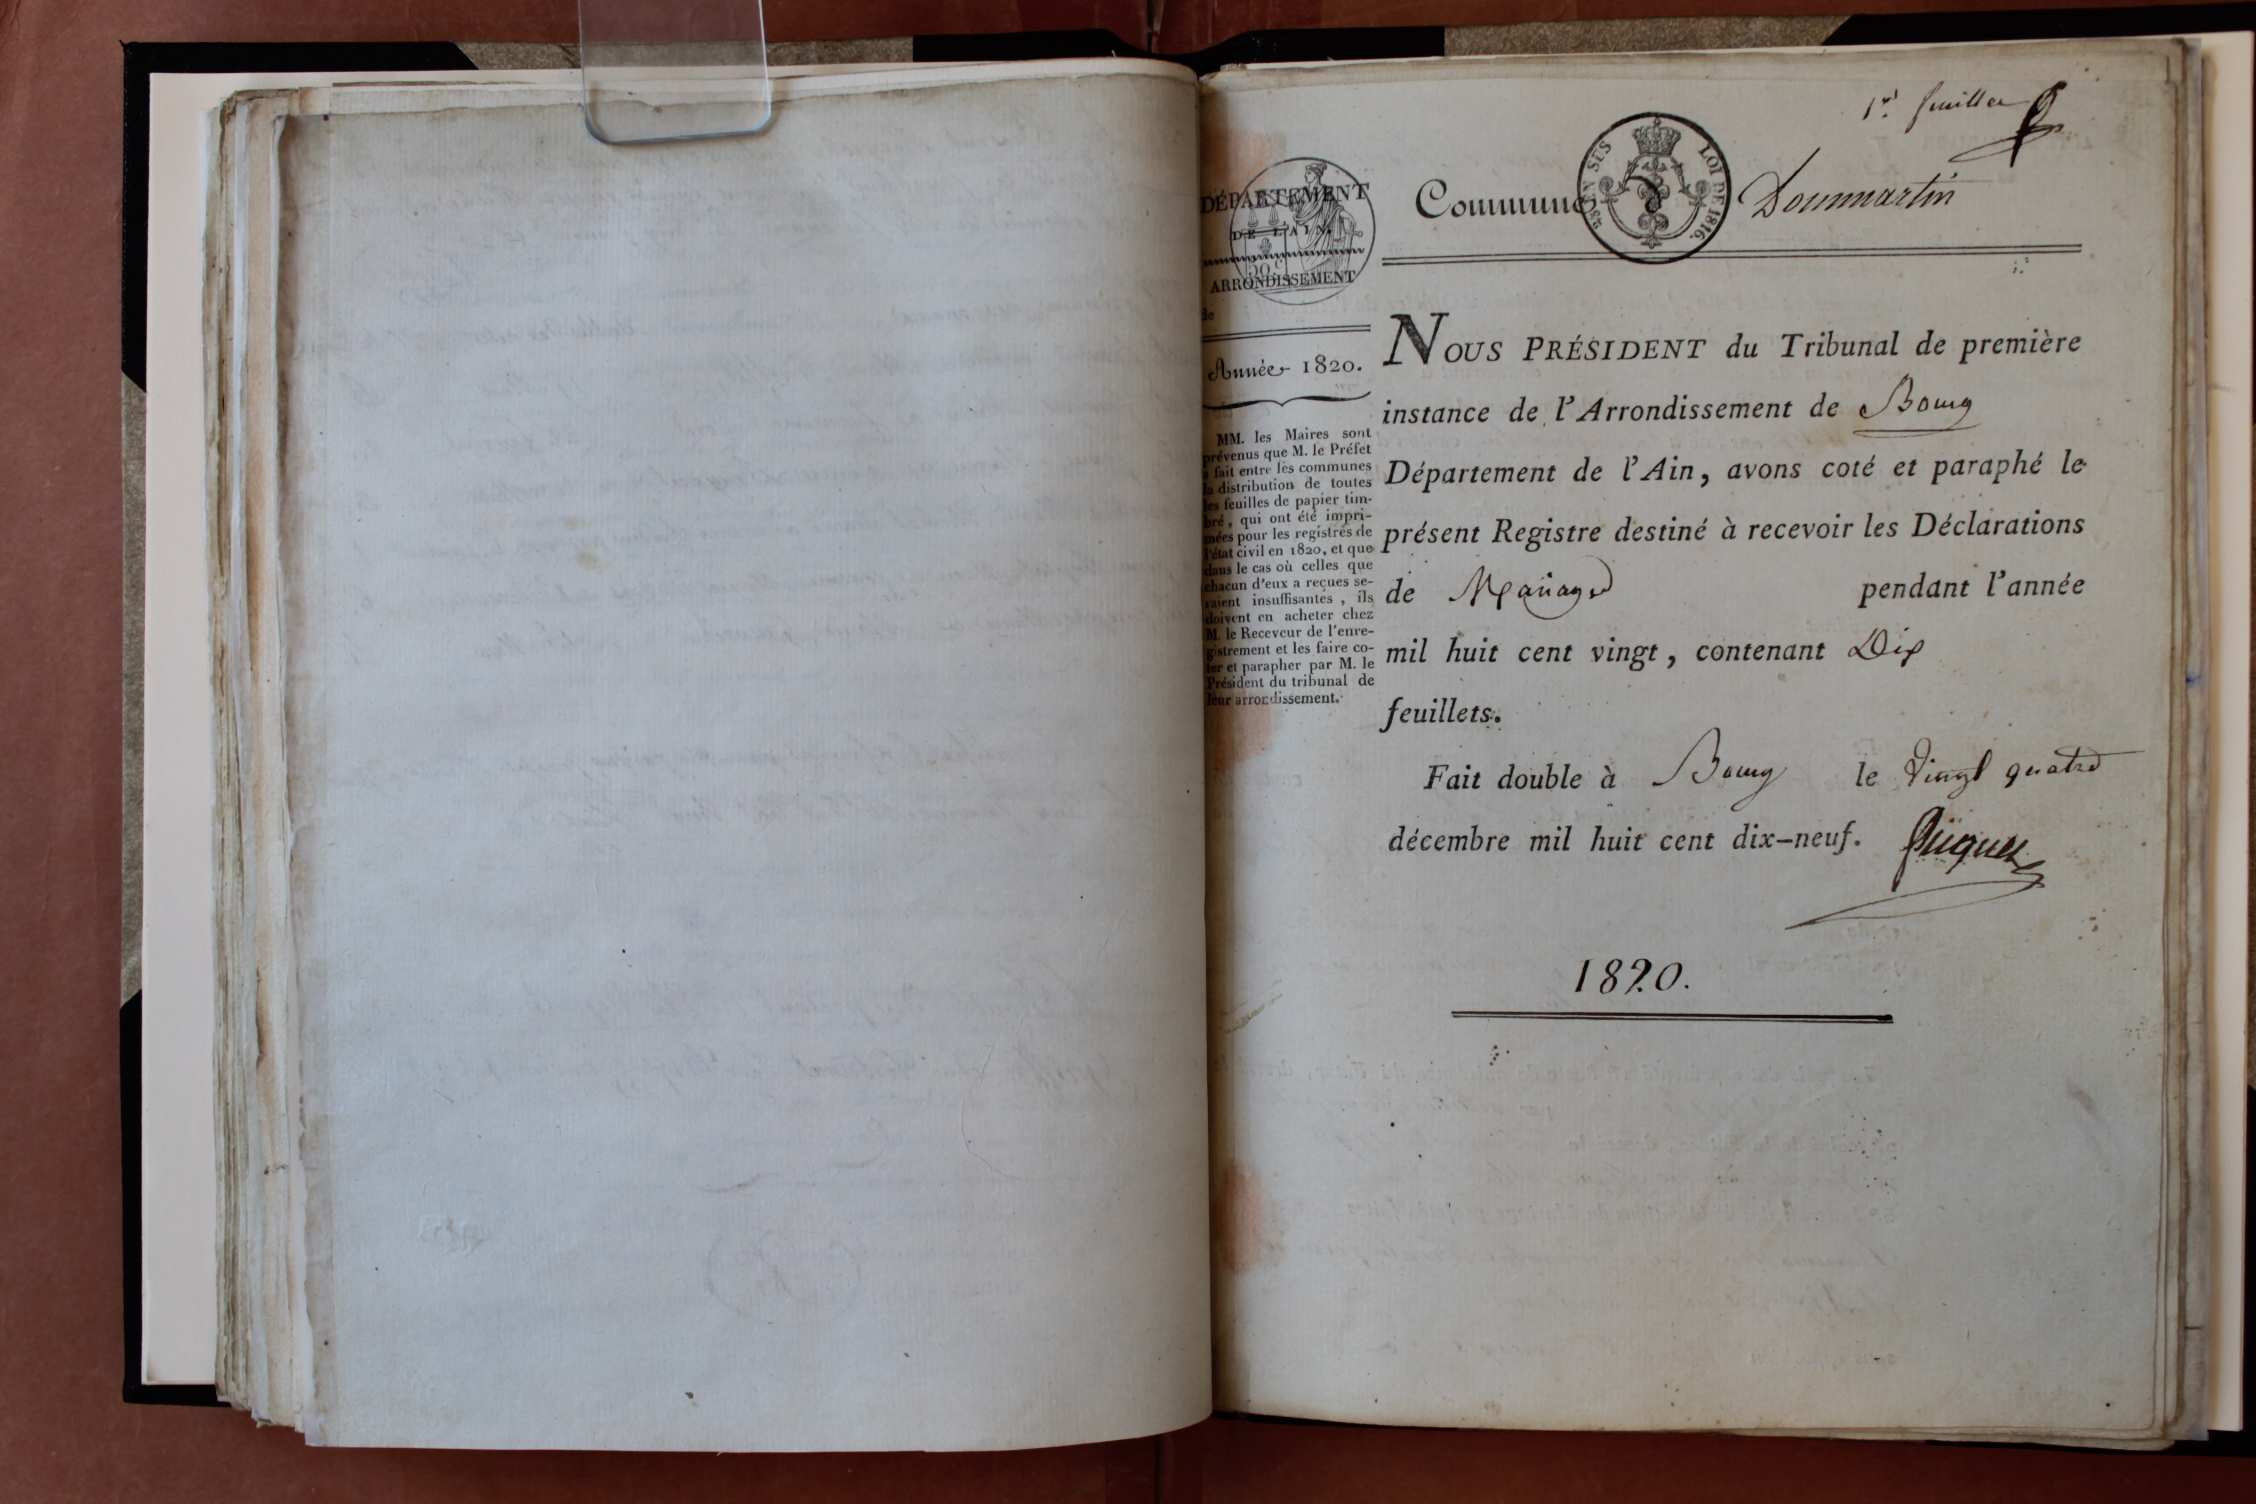 1er feuillet
DÉPARTEMENT
DE L'AIN.
ARRONDISSEMENT
de
Année 1820.
MM. les Maires sont
prévenus que M. le Préfet
a fait entre les communes
la distribution de toutes
les feuilles de papier tim-
bré, qui ont été impri-
mées pour les registres de
l'état civil en 1820, et que
dans le cas où celles que
chacun d'eux a reçues se-
raient insuffisantes, ils
doivent en acheter chez
M. le Receveur de l'enre-
gistrement et les faire co-
ter et parapher par M. le
Président du tribunal de
leur arrondissement.
Commune d Dommartin
EN SUS LOI DE 1816.
NOUS PRÉSIDENT du Tribunal de première
instance de l'Arrondissement de Bourg
Département de l'Ain, avons coté et paraphé le
présent Registre destiné à recevoir les Déclarations
de Mariage pendant l'année
mil huit cent vingt, contenant Dix
feuillets.
Fait double à Bourg le vingt quatre
décembre mil huit cent dix-neuf.
1820.